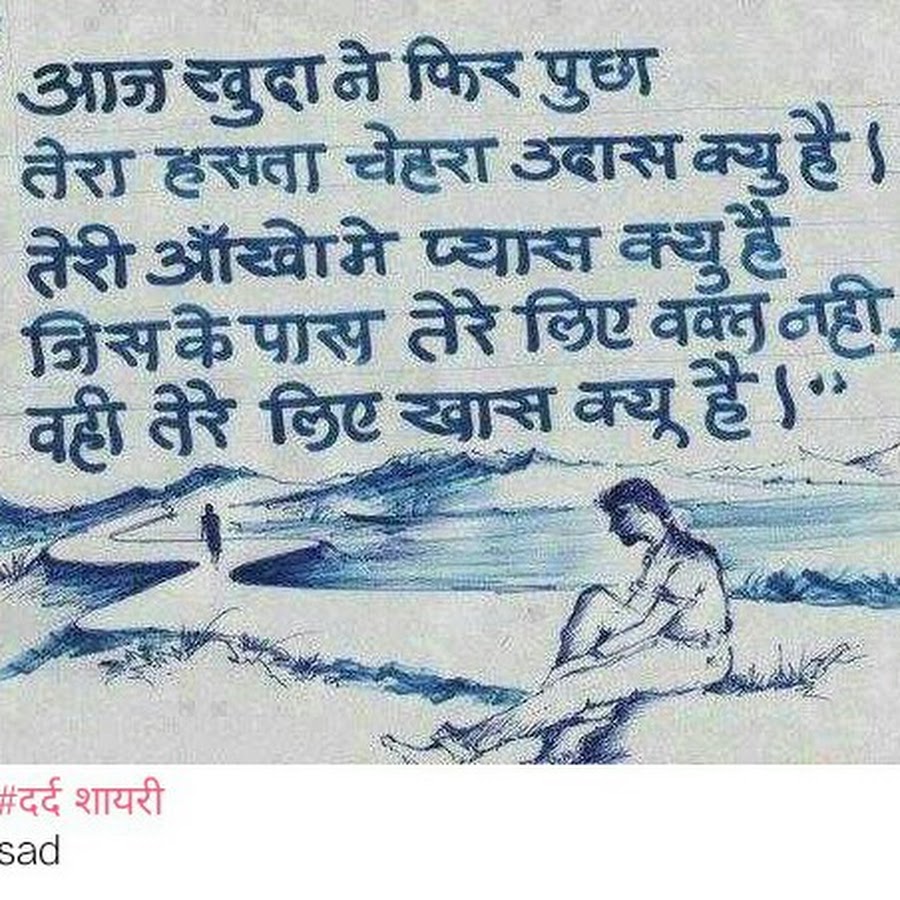 आज खुदा ने फिर पुछा
तेरा हसता चेहरा उदास क्यु है।
तेरी आँखो मे प्यास क्यु है
जिस के पास तेरे लिए वक्त नही,
वही तेरे लिए खास क्यू है।"
#दर्द शायरी
sad